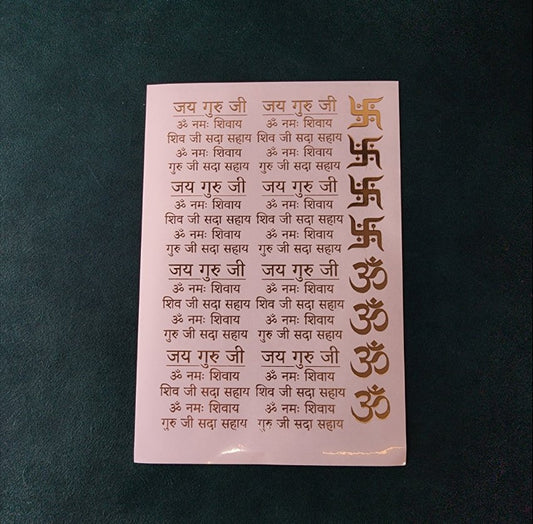 जय गुरु जी
ॐ नमः शिवाय
शिव जी सदा सहाय
ॐ नमः शिवाय
गुरु जी सदा सहाय
जय गुरु जी
ॐ नमः शिवाय
शिव जी सदा सहाय
ॐ नमः शिवाय
गुरु जी सदा सहाय
जय गुरु जी
ॐ नमः शिवाय
शिव जी सदा सहाय
ॐ नमः शिवाय
गुरु जी सदा सहाय
जय गुरु जी
ॐ नमः शिवाय
शिव जी सदा सहाय
ॐ नमः शिवाय
गुरु जी सदा सहाय
जय गुरु जी
ॐ नमः शिवाय
शिव जी सदा सहाय
ॐ नमः शिवाय
गुरु जी सदा सहाय
जय गुरु जी
ॐ नमः शिवाय
शिव जी सदा सहाय
ॐ नमः शिवाय
गुरु जी सदा सहाय
जय गुरु जी
ॐ नमः शिवाय
शिव जी सदा सहाय
ॐ नमः शिवाय
गुरु जी सदा सहाय
जय गुरु जी
ॐ नमः शिवाय
शिव जी सदा सहाय
ॐ नमः शिवाय
गुरु जी सदा सहाय
ॐ
ॐ
ॐ
ॐ